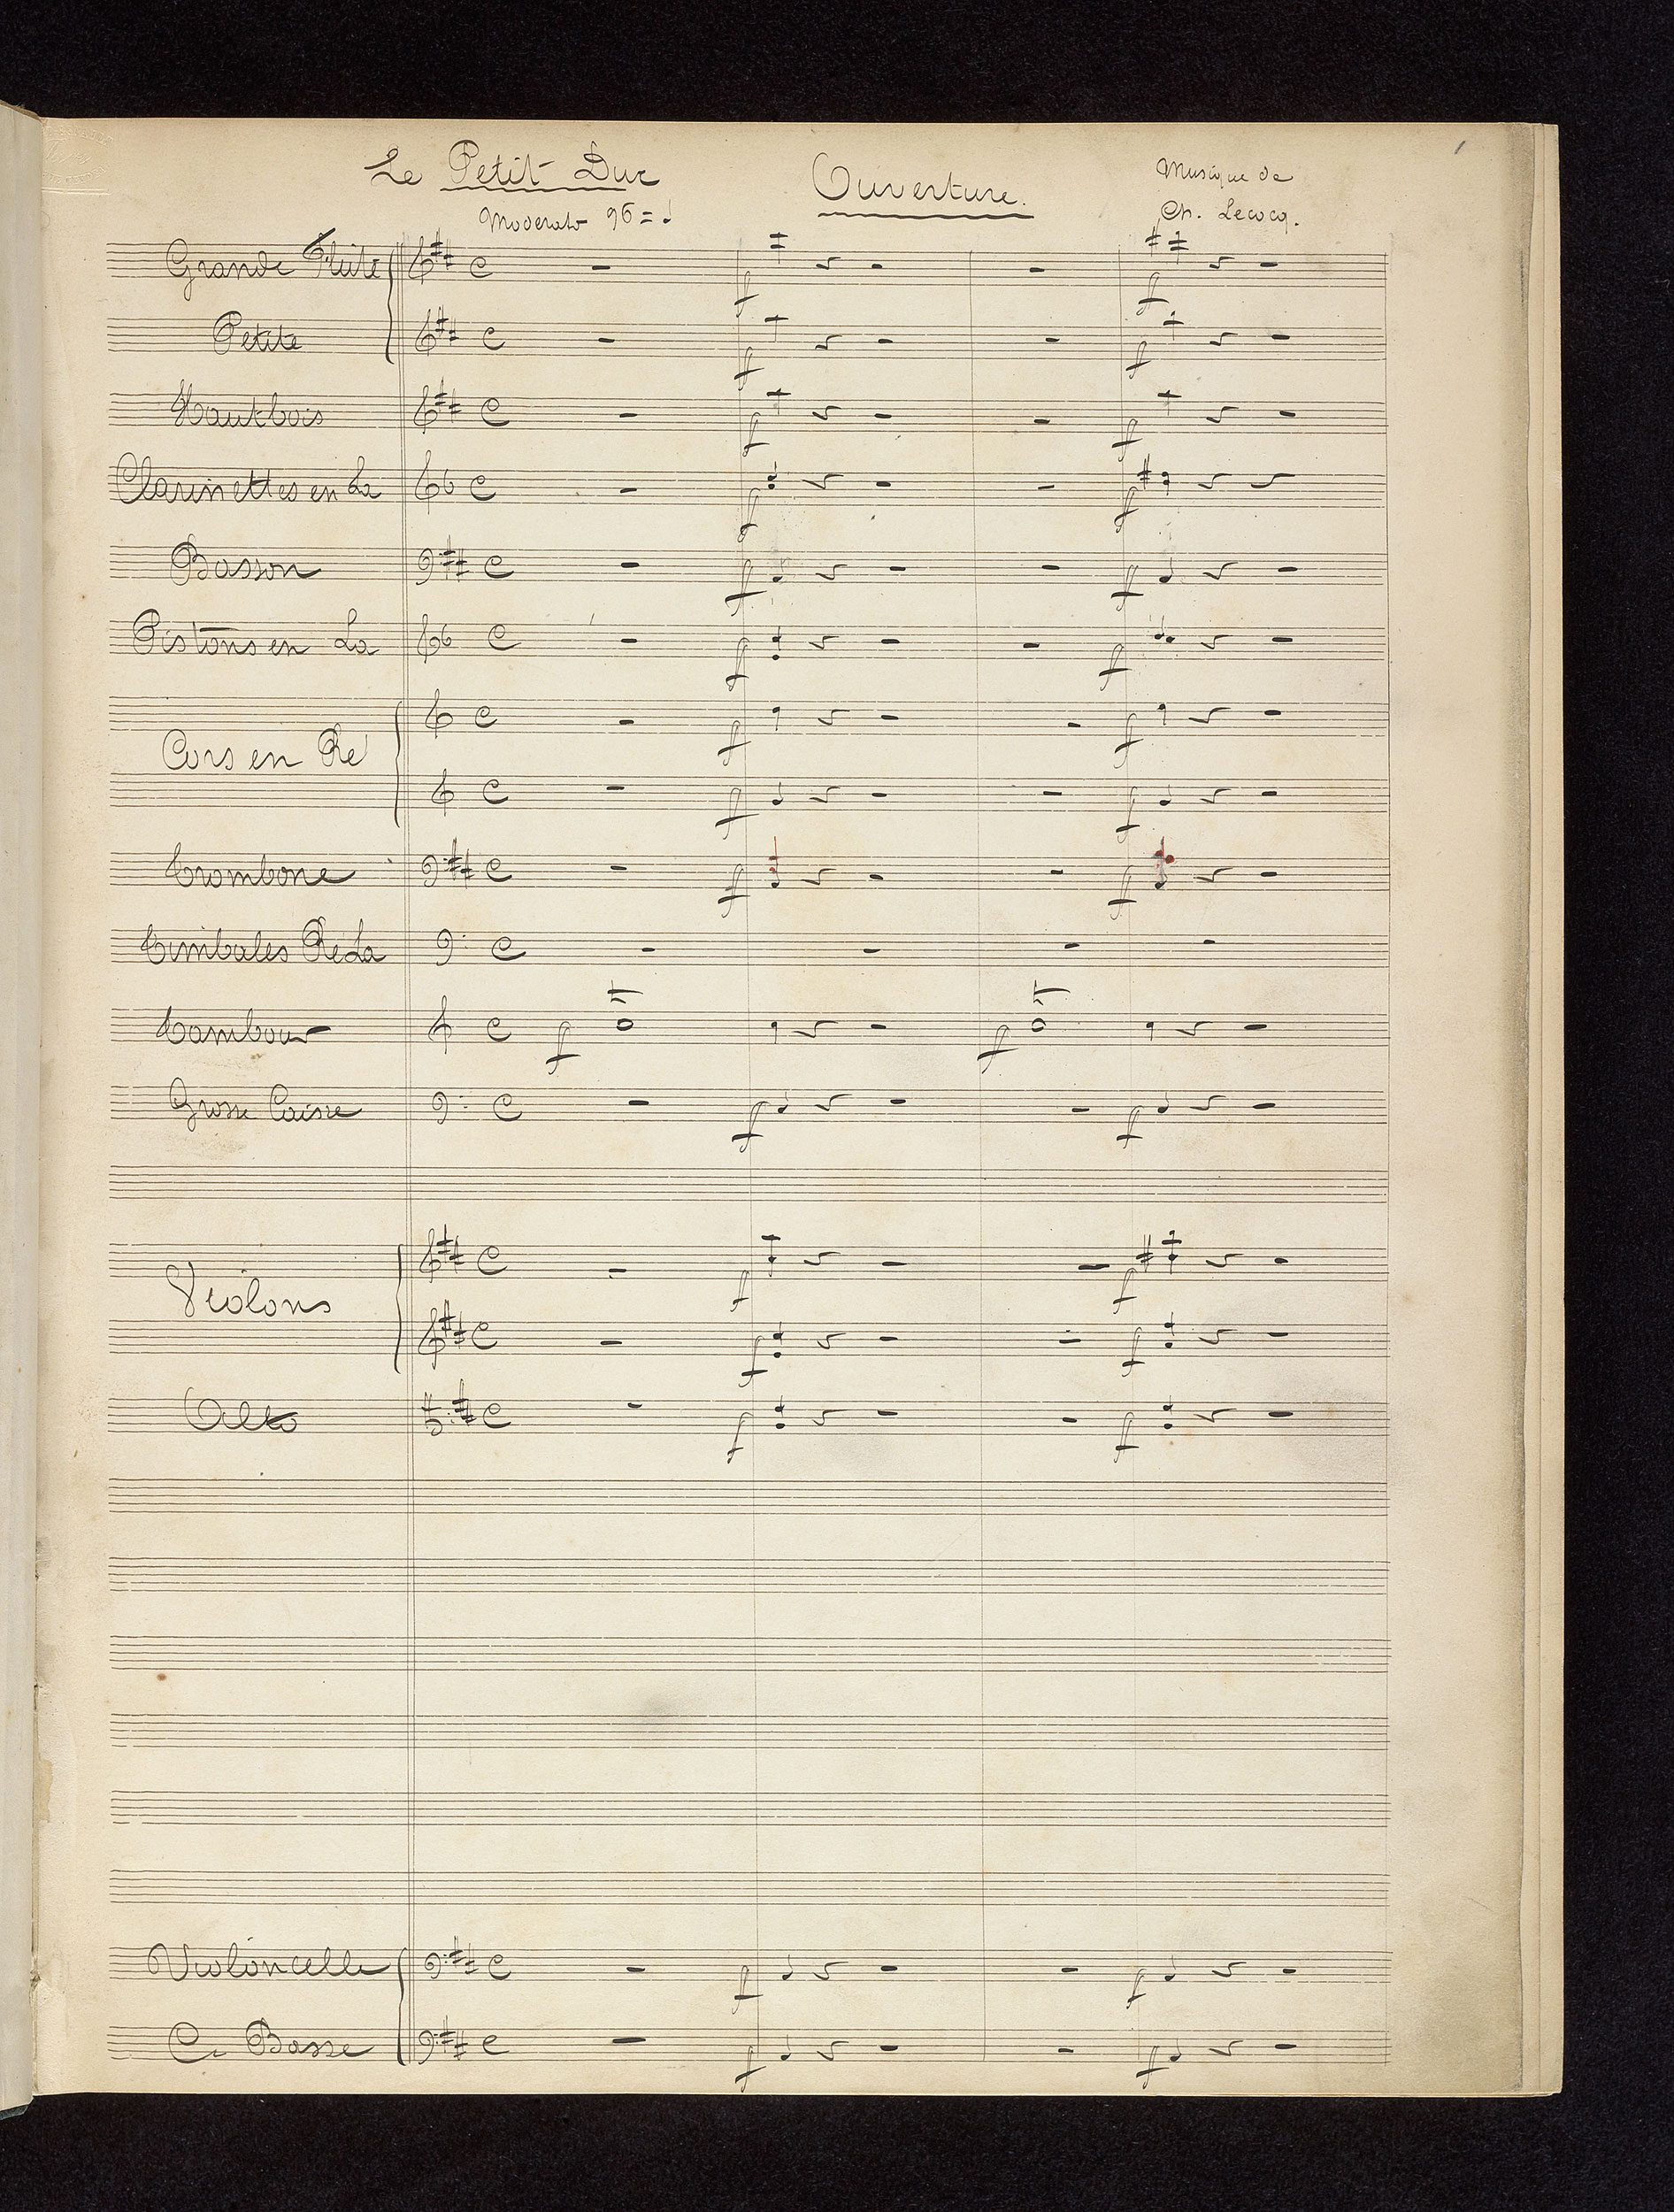 1
Le Petit Duc
Ouverture.
Musique de
Ch. Lecocq.
Moderato 96 = ♩
Grande Flûte
Petite
Hautbois
Clarinettes en La
Basson
Pistons en La
Cors en Ré
Trombone
Timbales Ré La
Tambour
Grosse Caisse
Violons
Alto
Violoncelle
C. Basse